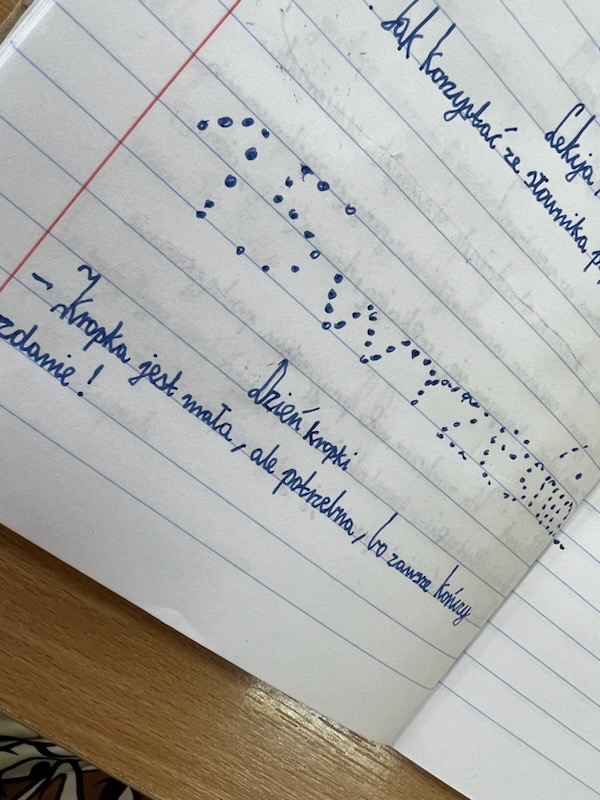 Lekcja
Jak korzystać ze słownika
15 września
Dzień kropki
- Kropka jest mała, ale potrzebna, bo zawsze kończy
zdanie!